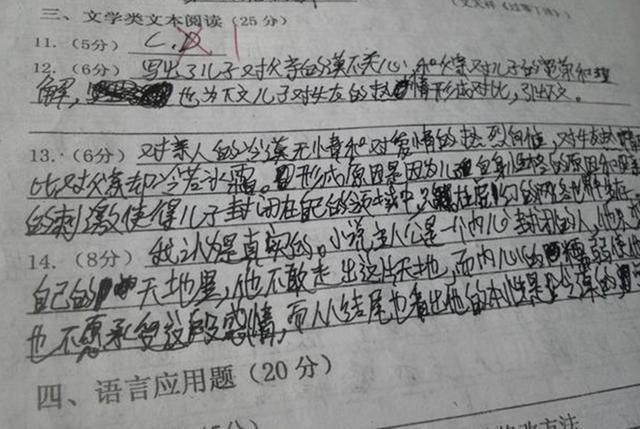 三、文学类文本阅读(25分)
11.(5分) C.D 1
12.(6分) 写出了儿子对父亲的冷漠不关心,和父亲对儿子的宽容和理
解, 也为下文儿子对女友的热情形成对比,引出下文。
13.(6分) 对亲人的冷漠无情和对爱情的热烈向往,对女友热情
比,对父亲却冷若冰霜。形成原因是因为儿子自身性格的原因和
的刺激使得儿子封闭在自己的领域中,
14.(8分) 我认为是真实的。小说主人公是一个内心封闭的人,他
自己的天地里,他不敢走出这片天地,而内心的懦弱使
也不愿承受这段感情,而从结尾也看出他的本性是冷漠的
四、语言应用题(20分)
修改方法